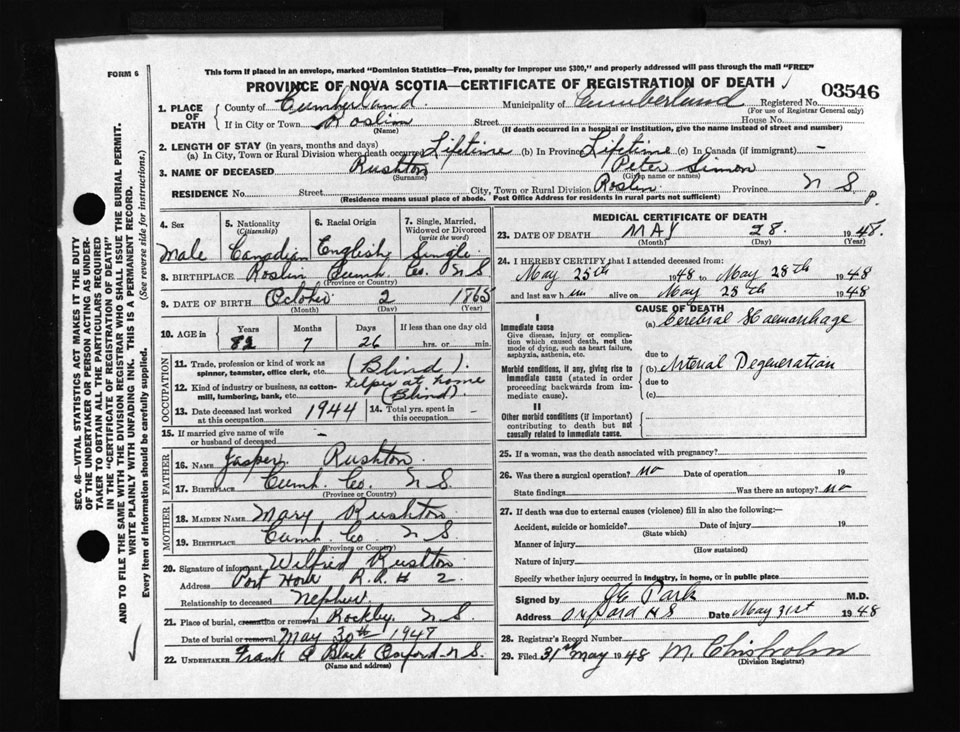 FORM 6
This form if placed in an envelope, marked "Dominion Statistics—Free, penalty for improper use $300," and properly addressed will pass through the mail "FREE"
PROVINCE OF NOVA SCOTIA—CERTIFICATE OF REGISTRATION OF DEATH
03546
1. PLACE OF DEATH County of Cumberland Municipality of Cumberland Registered No.
(For use of Registrar General only)
If in City or Town Roslin Street House No.
(Name) (If death occurred in a hospital or institution, give the name instead of street and number)
2. LENGTH OF STAY (in years, months and days)
(a) In City, Town or Rural Division where death occurred Lifetime (b) In Province Lifetime (c) In Canada (if immigrant) -
3. NAME OF DECEASED Rushton Peter Simon
(Surname) (Given name or names)
RESIDENCE No. Street City, Town or Rural Division Roslin Province N S.
(Residence means usual place of abode. Post Office Address for residents in rural parts not sufficient) P.
4. Sex 5. Nationality (Citizenship) 6. Racial Origin 7. Single, Married, Widowed or Divorced (write the word)
Male Canadian English Single
8. BIRTHPLACE Roslin Cumb. Co. N S
(Province or Country)
9. DATE OF BIRTH October 2 1865
(Month) (Day) (Year)
10. AGE in Years Months Days If less than one day old
82 7 26 hrs. or min.
OCCUPATION
11. Trade, profession or kind of work as spinner, teamster, office clerk, etc. (Blind).
12. Kind of industry or business, as cotton-mill, lumbering, bank, etc. helper at home (Blind).
13. Date deceased last worked at this occupation 1944 14. Total yrs. spent in this occupation -
15. If married give name of wife or husband of deceased -
FATHER
16. NAME Jasper Rushton.
17. BIRTHPLACE Cumb. Co. N S.
(Province or Country)
MOTHER
18. MAIDEN NAME Mary Rushton
19. BIRTHPLACE Cumb. Co N S.
(Province or Country)
20. Signature of informant Wilfred Rushton
Address Port Howe R. R. # 2
Relationship to deceased nephew
21. Place of burial, cremation or removal Rockley N S.
Date of burial or removal May 30th 1947
22. UNDERTAKER Frank Black Oxford N S.
(Name and address)
MEDICAL CERTIFICATE OF DEATH
23. DATE OF DEATH MAY 28. 1948.
(Month) (Day) (Year)
24. I HEREBY CERTIFY that I attended deceased from:
May 25th 1948 to May 28th 1948
and last saw him alive on May 28th 1948
CAUSE OF DEATH
I
Immediate cause
Give disease, injury or complication which caused death, not the mode of dying, such as heart failure, asphyxia, asthenia, etc.
(a) Cerebral Haemorrhage
due to
Morbid conditions, if any, giving rise to immediate cause (stated in order proceeding backwards from immediate cause).
(b) Arterial Degeneration
due to
(c)
II
Other morbid conditions (if important) contributing to death but not causally related to immediate cause.
25. If a woman, was the death associated with pregnancy?
26. Was there a surgical operation? no Date of operation 19
State findings Was there an autopsy? no
27. If death was due to external causes (violence) fill in also the following:—
Accident, suicide or homicide? Date of injury 19
(State which)
Manner of injury
(How sustained)
Nature of injury
Specify whether injury occurred in industry, in home, or in public place
Signed by Park M.D.
Address Oxford N S Date May 31st 1948
28. Registrar's Record Number
29. Filed 31st May 1948 M. Chisholm
(Division Registrar)
SEC. 46—VITAL STATISTICS ACT MAKES IT THE DUTY
OF THE UNDERTAKER OR PERSON ACTING AS UNDER-
TAKER TO OBTAIN ALL THE PARTICULARS REQUIRED
IN THE "CERTIFICATE OF REGISTRATION OF DEATH"
AND TO FILE THE SAME WITH THE DIVISION REGISTRAR WHO SHALL ISSUE THE BURIAL PERMIT.
WRITE PLAINLY WITH UNFADING INK. THIS IS A PERMANENT RECORD.
Every item of information should be carefully supplied. (See reverse side for instructions.)